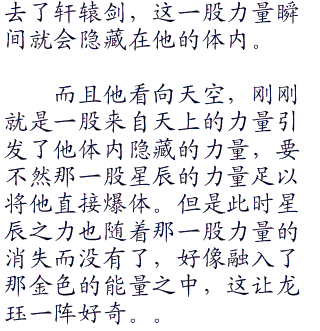 去了轩辕剑，这一股力量瞬
间就会隐藏在他的体内。
而且他看向天空，刚刚
就是一股来自天上的力量引
发了他体内隐藏的力量，要
不然那一股星辰的力量足以
将他直接爆体。但是此时星
辰之力也随着那一股力量的
消失而没有了，好像融入了
那金色的能量之中，这让龙
珏一阵好奇。。